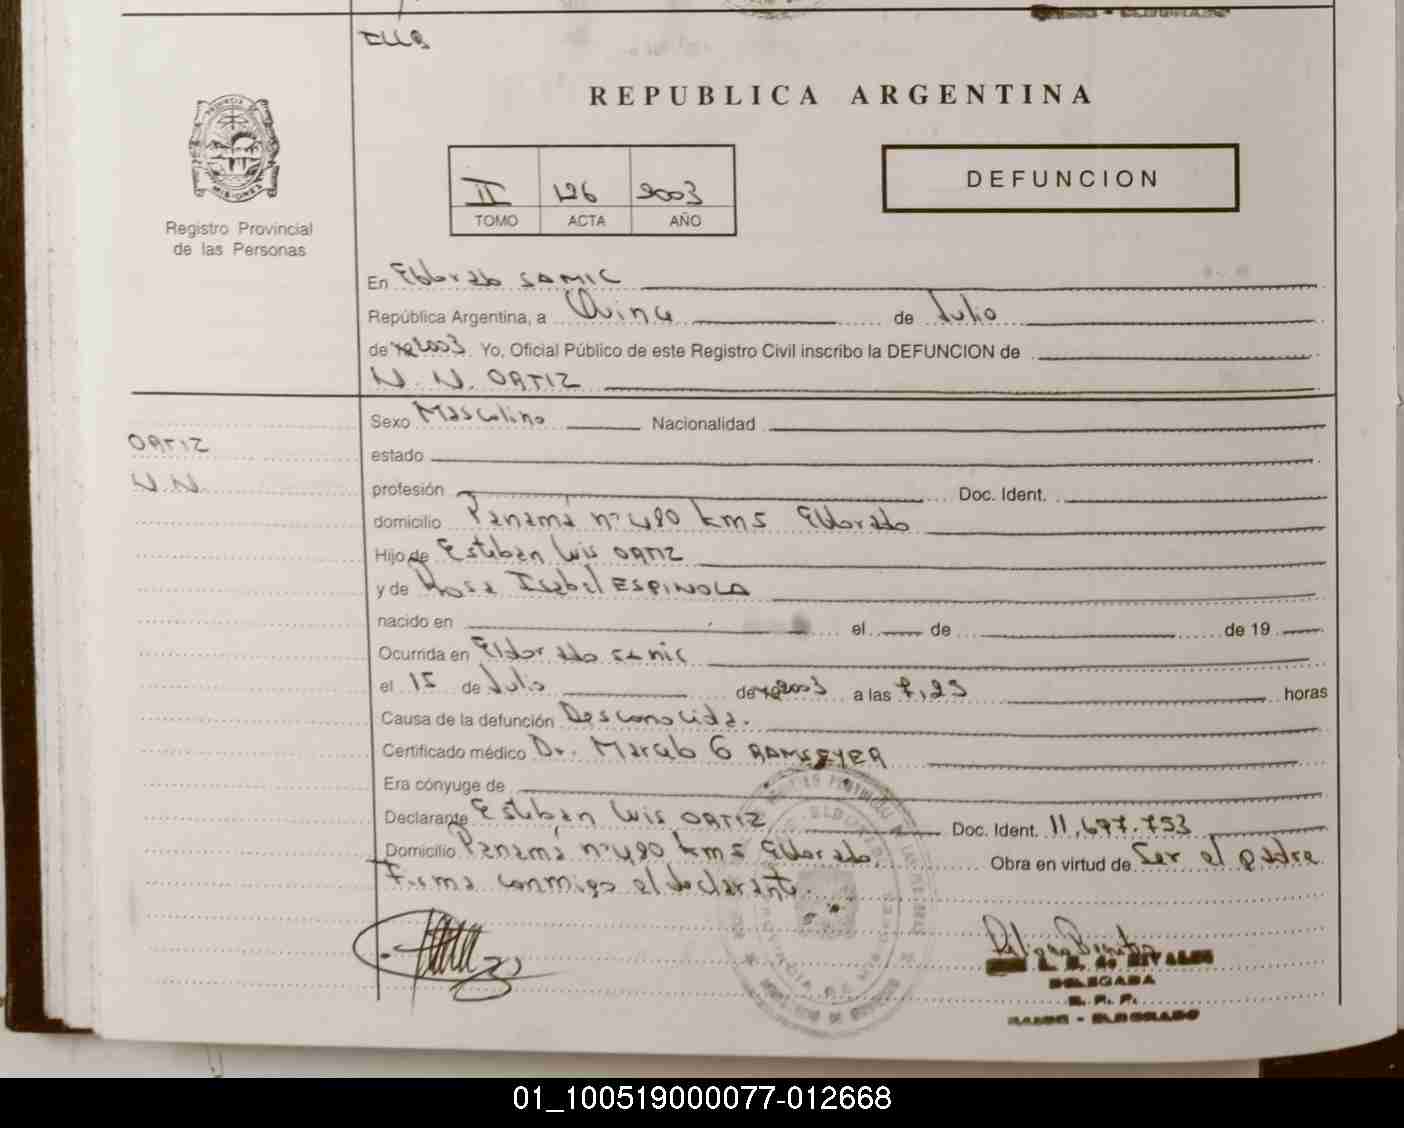 REPUBLICA ARGENTINA
II 126 2003
TOMO ACTA AÑO
DEFUNCION
PROVINCIA DE
MISIONES
Registro Provincial
de las Personas
En Eldorado SAMIC
República Argentina, a Quince de Julio
de 19 2003. Yo, Oficial Público de este Registro Civil inscribo la DEFUNCION de
N. N. ORTIZ
ORTIZ
N.N.
Sexo Masculino Nacionalidad
estado
profesión Doc. Ident.
domicilio Panamá nº 490 km 5 Eldorado
Hijo de Esteban Luis ORTIZ
y de Rosa Isabel ESPINOLA
nacido en el de de 19
Ocurrida en Eldorado samic
el 15 de Julio de 19 2003 a las 7,25 horas
Causa de la defunción Desconocida.
Certificado médico Dr. Marcelo G RAMSEYER
Era cónyuge de
Declarante Esteban Luis ORTIZ Doc. Ident. 11,697.753
Domicilio Panamá nº 490 km 5 Eldorado. Obra en virtud de Ser el padre
Firma conmigo el declarante.
DELEGADA
R. P. P.
SAMIC - ELDORADO
01_100519000077-012668